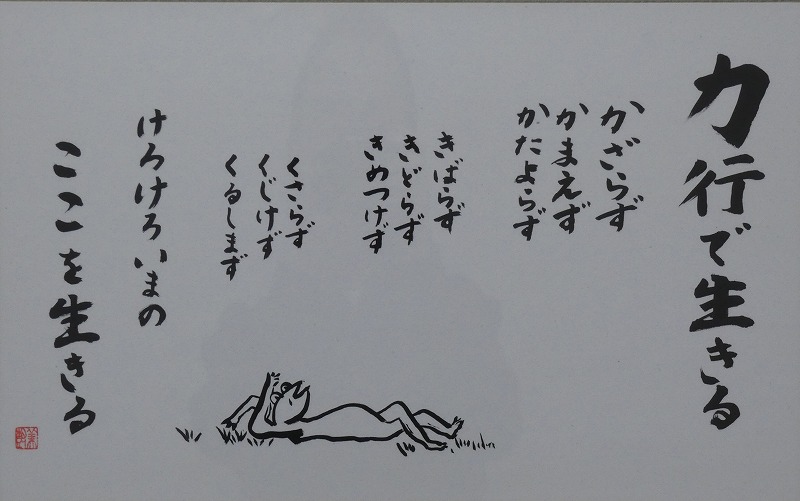 カ行で生きる
かざらず
かまえず
かたよらず
きばらず
きどらず
きめつけず
くさらず
くじけず
くるしまず
けろけろいまの
ここを生きる